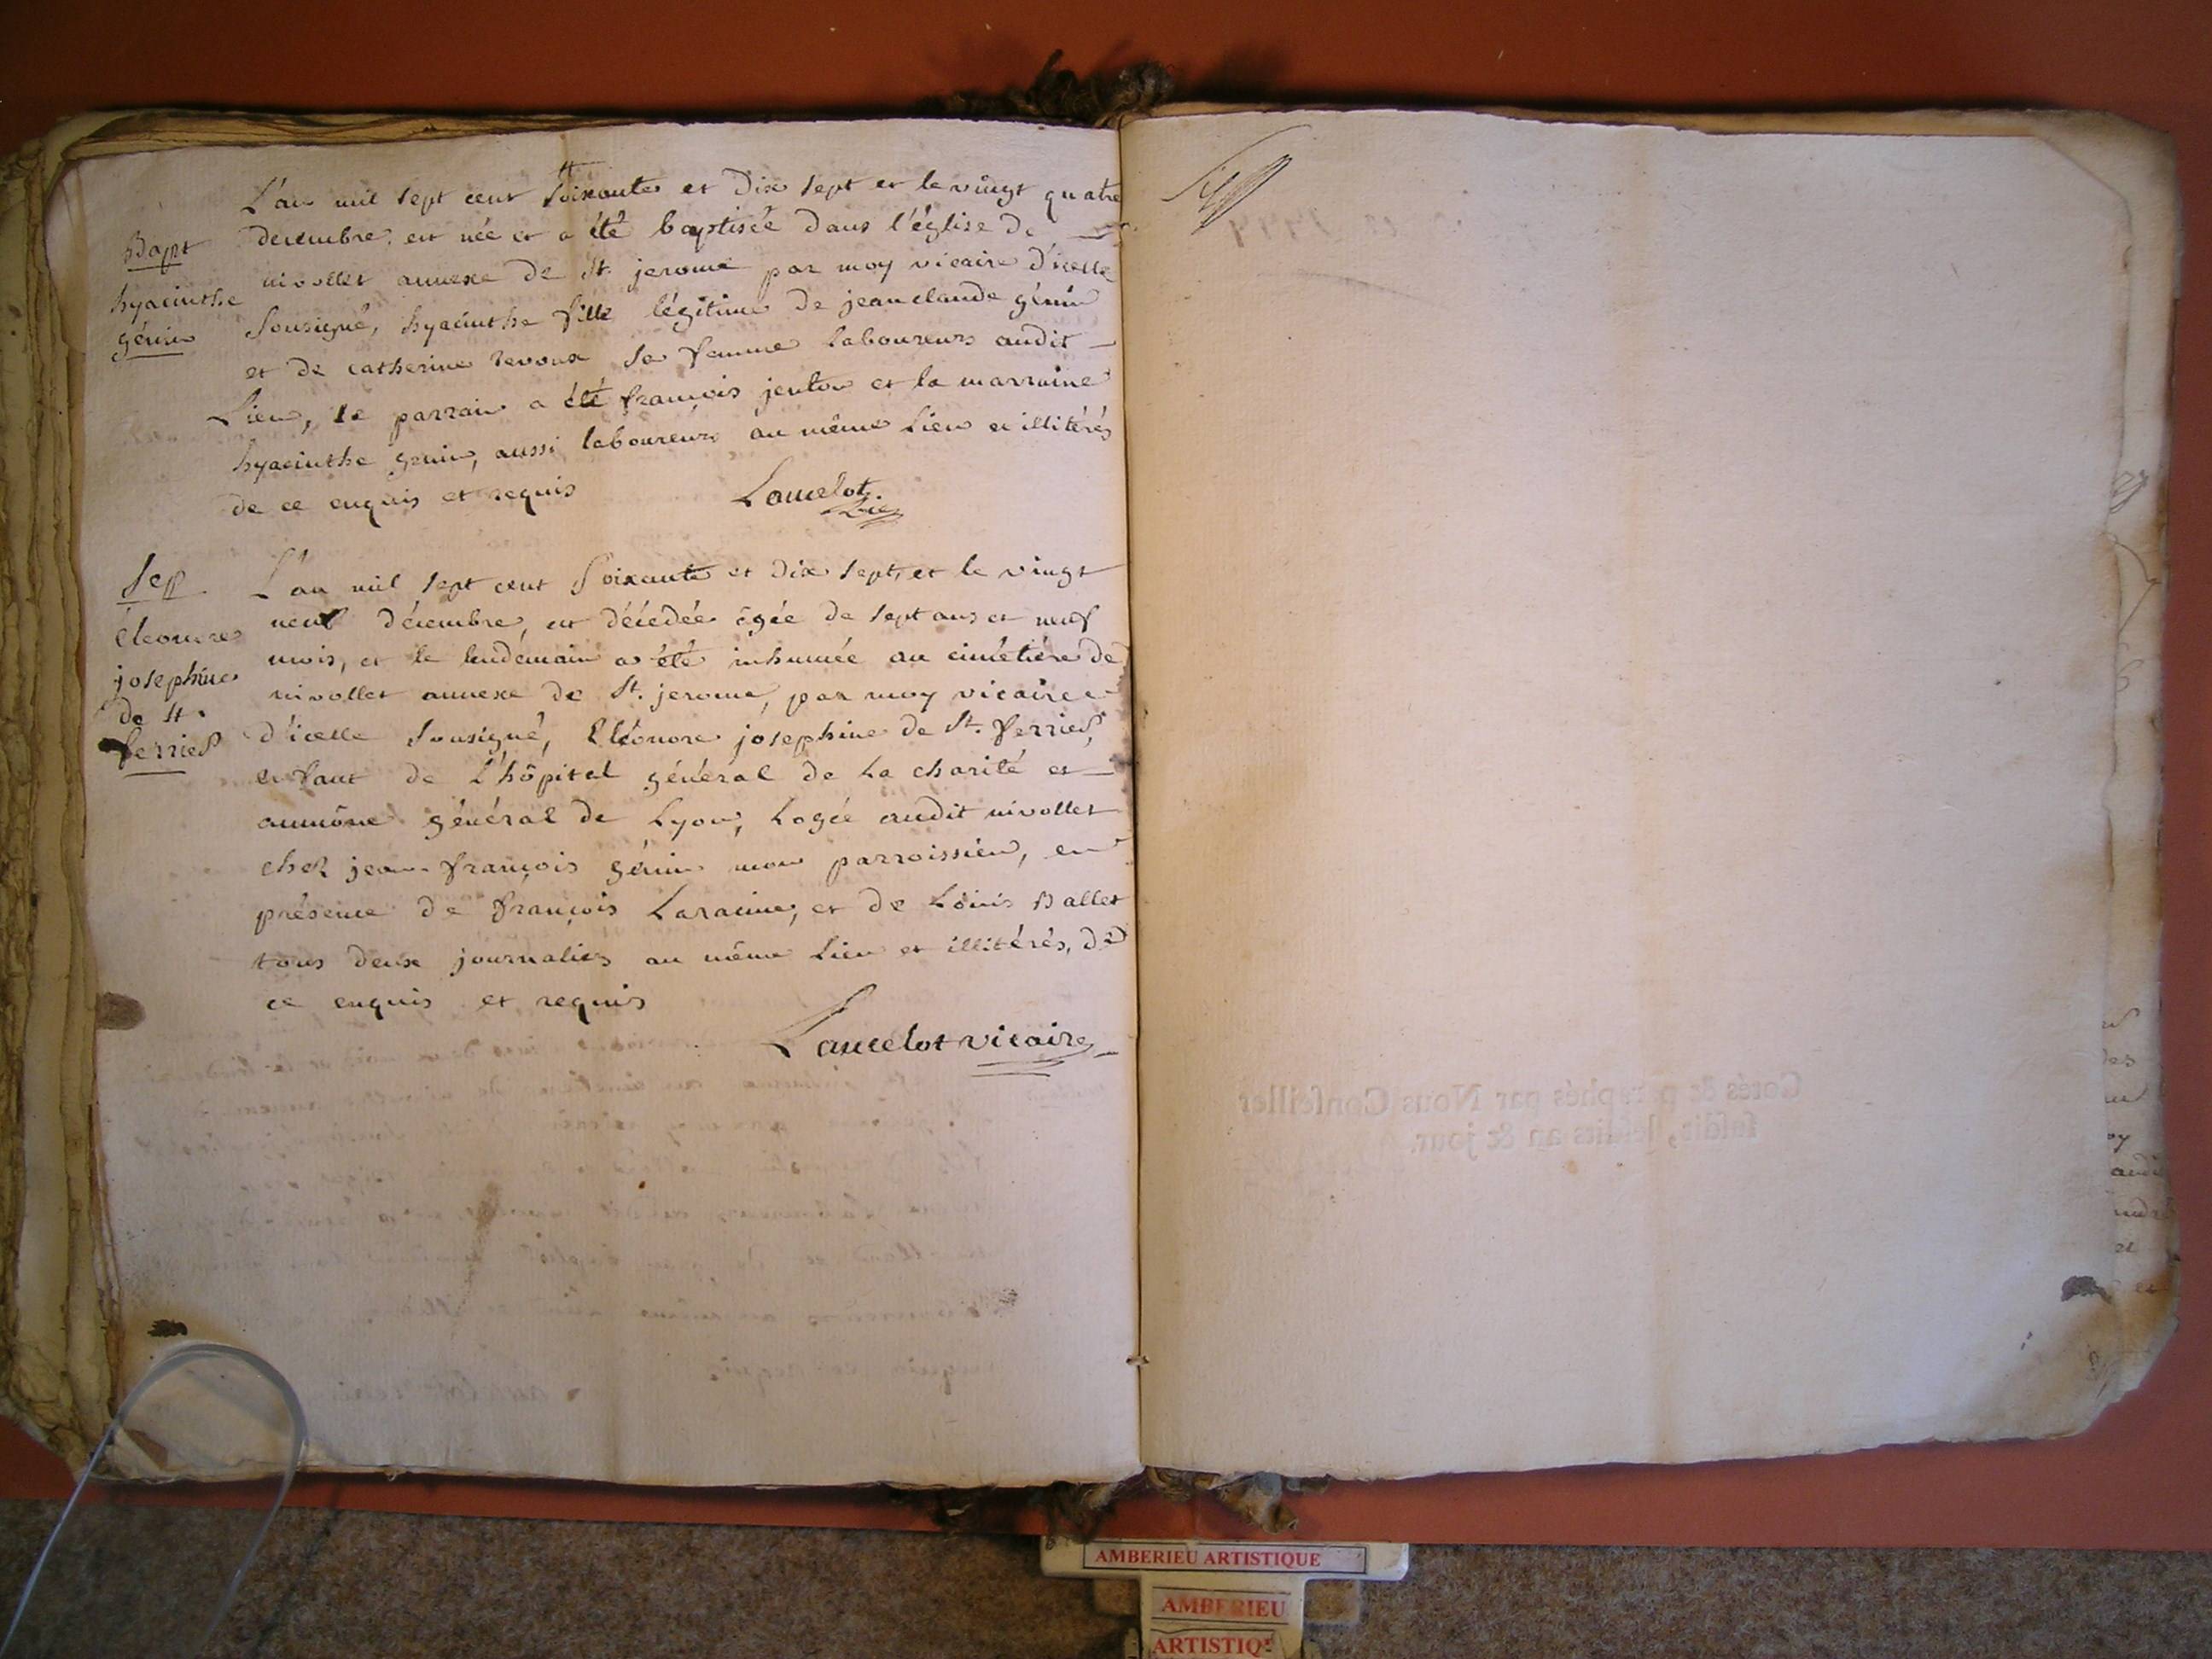 L'an mil sept cent soixante et dix sept et le vingt quatre
decembre, est née et a été baptisée dans l'église de
nivollet annexe de St. jerome par moy vicaire d'icelle
Bapt
hyacinthe
génin
sousigné, hyacinthe fille légitime de jean claude génin
et de catherine revoux sa femme laboureurs audit
Lieu, le parrain a été françois jenton et la marraine
hyacinthe genin, aussi laboureurs au même Lieu et illitérés
de ce enquis et requis
Lancelot.
vic
Sep
éleonore
josephine
de St.
ferrieS
L'an mil sept cent soixante et dix sept, et le vingt
neuf décembre, est décédée âgée de sept ans et neuf
mois, et le lendemain a été inhumée au cimétière de
nivollet annexe de St. jerome, par moy vicaire
d'icelle sousigné, Eléonore josephine de St. ferrieS,
enfant de L'hôpital général de La charité et
aumône général de Lyon, Logée audit nivollet
chez jean-françois génin mon parroissien, en
présence de françois Laracine, et de Loüis Ballet
tous deux journaliers au même Lieu et illitérés, de
ce enquis et requis
Lancelot vicaire
Cotés & paraphés par Nous Conseiller
susdit, lesdits an & jour.
AMBERIEU ARTISTIQUE
AMBERIEU
ARTISTIQUE